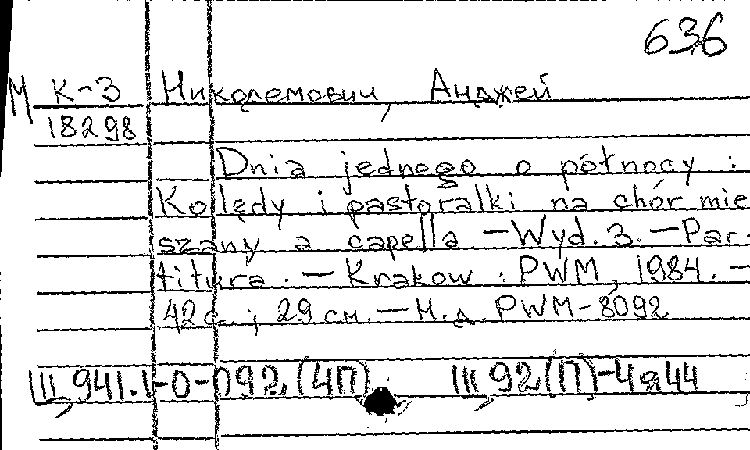 636
М К-3 Николемович, Анджей
18298
Dnia jednego o północy :
Kolędy i pastorałki na chór mie
szany a capella - Wyd. 3. - Par-
titura. - Krakow : PWM, 1984. -
42 с ; 29 см. - Н.д. PWM-8092
Щ941.1-0-092(4П) Щ92(П)-4я44